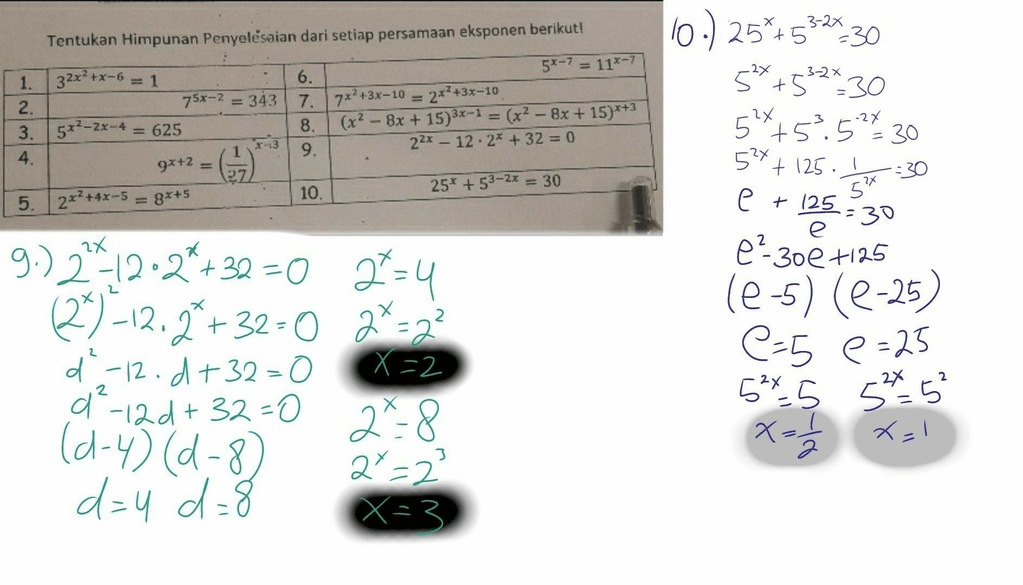 Tentukan Himpunan Penyelesaian dari setiap persamaan eksponen berikut!
1. 3^{2x^2+x-6} = 1
2. 7^{5x-2} = 343
3. 5^{x^2-2x-4} = 625
4. 9^{x+2} = (1/27)^{x-3}
5. 2^{x^2+4x-5} = 8^{x+5}
6. 5^{x-7} = 11^{x-7}
7. 7^{x^2+3x-10} = 2^{x^2+3x-10}
8. (x^2 - 8x + 15)^{3x-1} = (x^2 - 8x + 15)^{x+3}
9. 2^{2x} - 12 · 2^x + 32 = 0
10. 25^x + 5^{3-2x} = 30
9.) 2^{2x} - 12 · 2^x + 32 = 0
(2^x)^2 - 12 . 2^x + 32 = 0
d^2 - 12 . d + 32 = 0
d^2 - 12d + 32 = 0
(d-4) (d-8)
d=4 d=8
2^x = 4
2^x = 2^2
x = 2
2^x = 8
2^x = 2^3
x = 3
10.) 25^x + 5^{3-2x} = 30
5^{2x} + 5^{3-2x} = 30
5^{2x} + 5^3 . 5^{-2x} = 30
5^{2x} + 125 . 1/5^{2x} = 30
e + 125/e = 30
e^2 - 30e + 125
(e-5) (e-25)
e=5 e=25
5^{2x} = 5 5^{2x} = 5^2
x = 1/2 x = 1